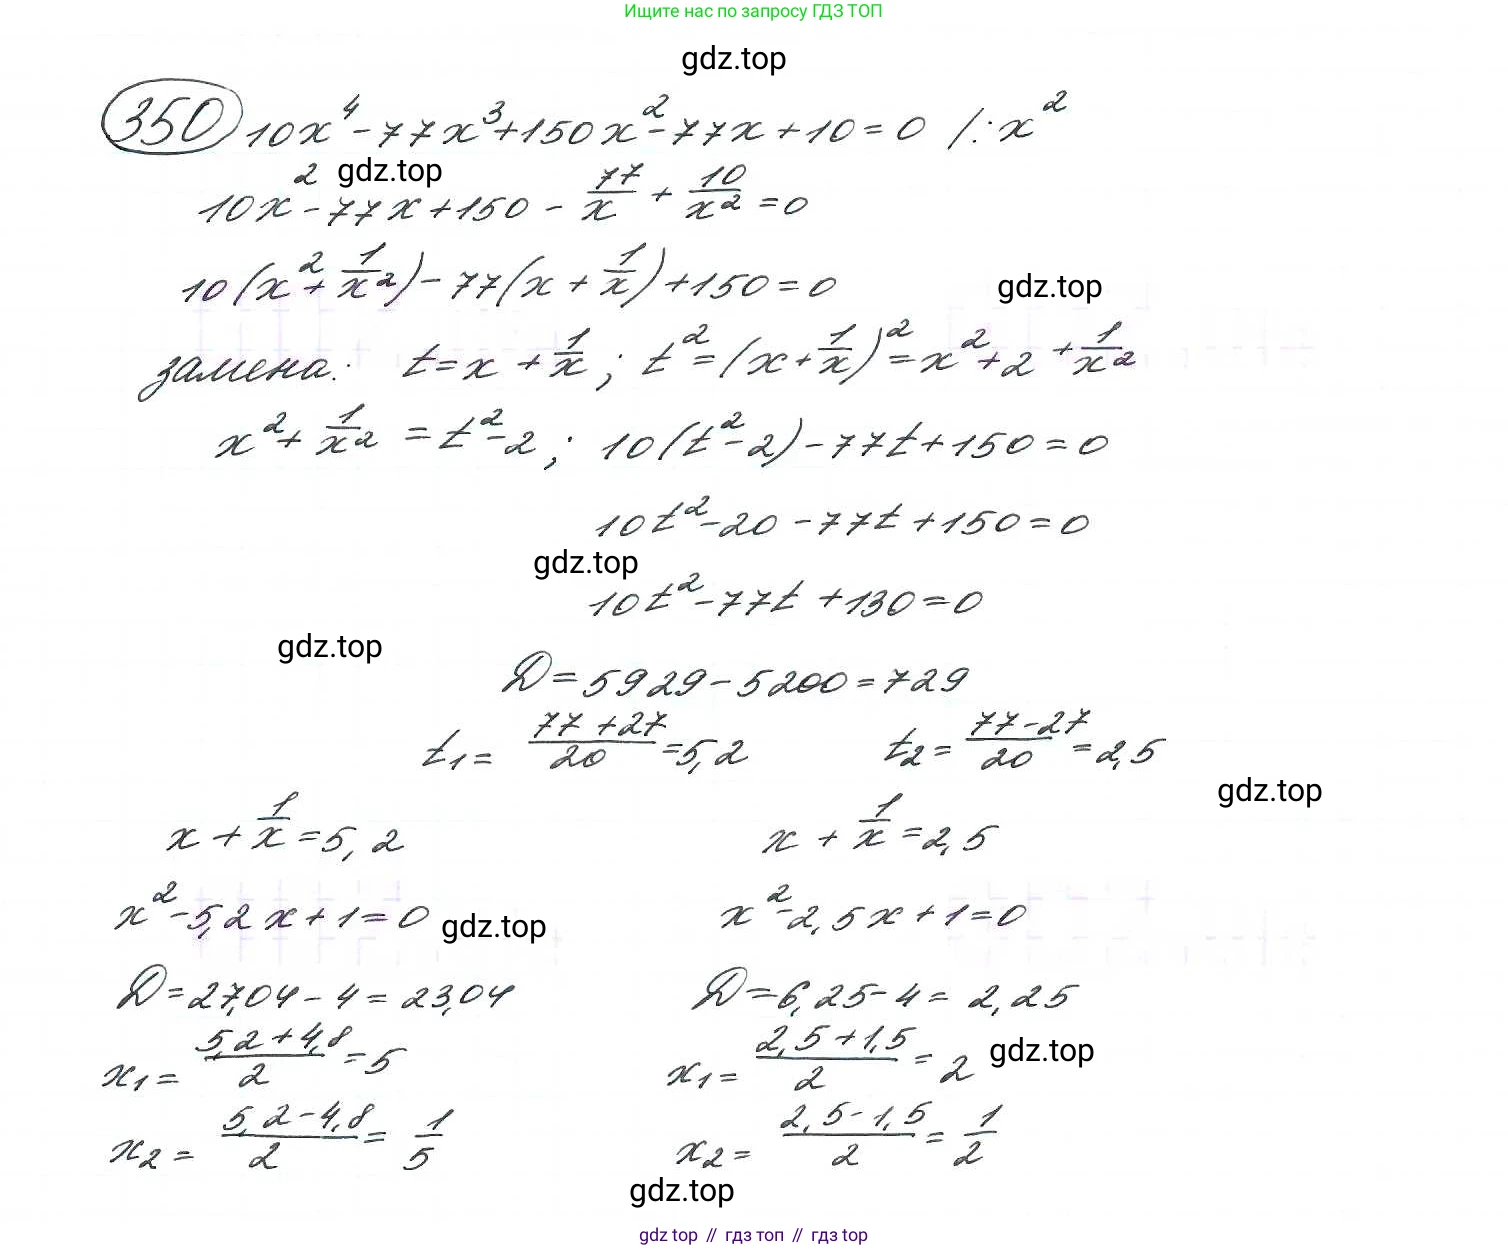 Ищите нас по запросу ГДЗ ТОП
gdz.top
350 10x⁴ - 77x³ + 150x² - 77x + 10 = 0 /: x²
gdz.top
10x² - 77x + 150 - 77/x + 10/x² = 0
10(x² + 1/x²) - 77(x + 1/x) + 150 = 0
gdz.top
замена: t = x + 1/x ; t² = (x + 1/x)² = x² + 2 + 1/x²
x² + 1/x² = t² - 2 ; 10(t² - 2) - 77t + 150 = 0
10t² - 20 - 77t + 150 = 0
gdz.top
10t² - 77t + 130 = 0
gdz.top
D = 5929 - 5200 = 729
t₁ = (77 + 27)/20 = 5,2 t₂ = (77 - 27)/20 = 2,5
gdz.top
x + 1/x = 5,2 x + 1/x = 2,5
x² - 5,2x + 1 = 0 gdz.top x² - 2,5x + 1 = 0
D = 27,04 - 4 = 23,04 D = 6,25 - 4 = 2,25
x₁ = (5,2 + 4,8)/2 = 5 x₁ = (2,5 + 1,5)/2 = 2 gdz.top
x₂ = (5,2 - 4,8)/2 = 1/5 x₂ = (2,5 - 1,5)/2 = 1/2
gdz.top
gdz top // гдз топ // гдз top